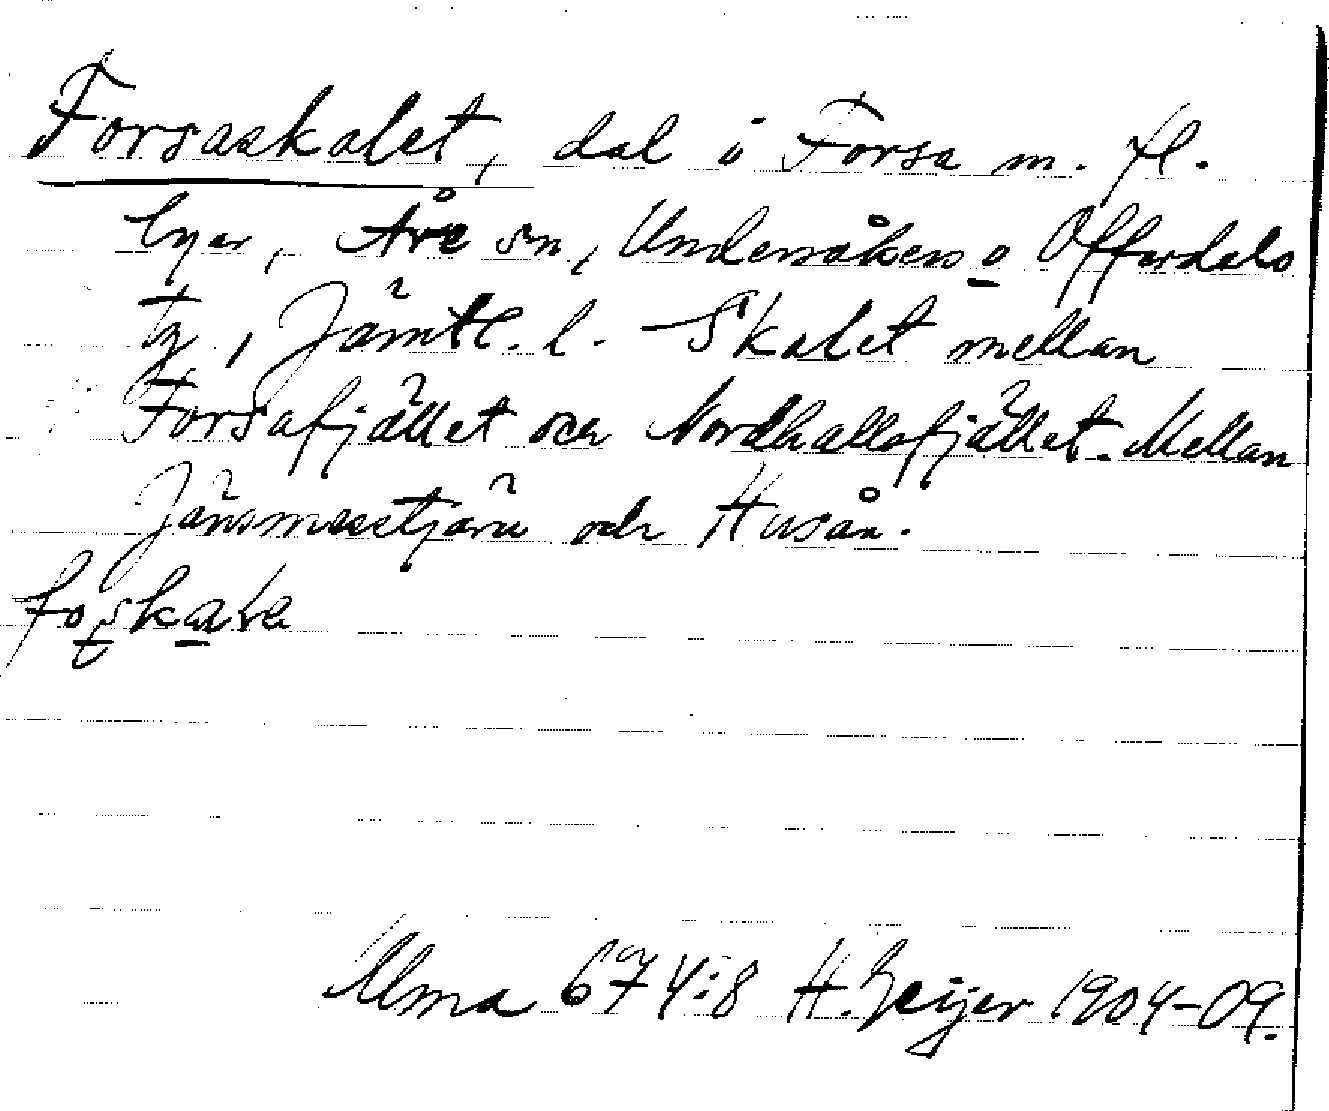 Forsaskalet, dal i Forsa m. fl.
byar, Åre sn, Undersåkers o Offerdals
tg, Jämtl. l. Skalet mellan
Forsafjället och Nordhallsfjället. Mellan
och Husån.
Ulma 674:8 H. Geijer 1904-09.